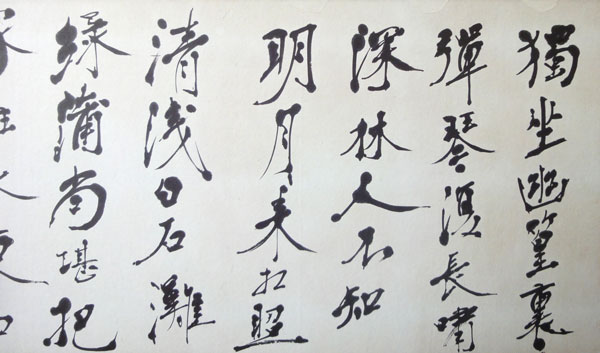 獨坐幽篁裏
彈琴復長嘯
深林人不知
明月来相照
清浅白石灘
緑蒲尚堪把